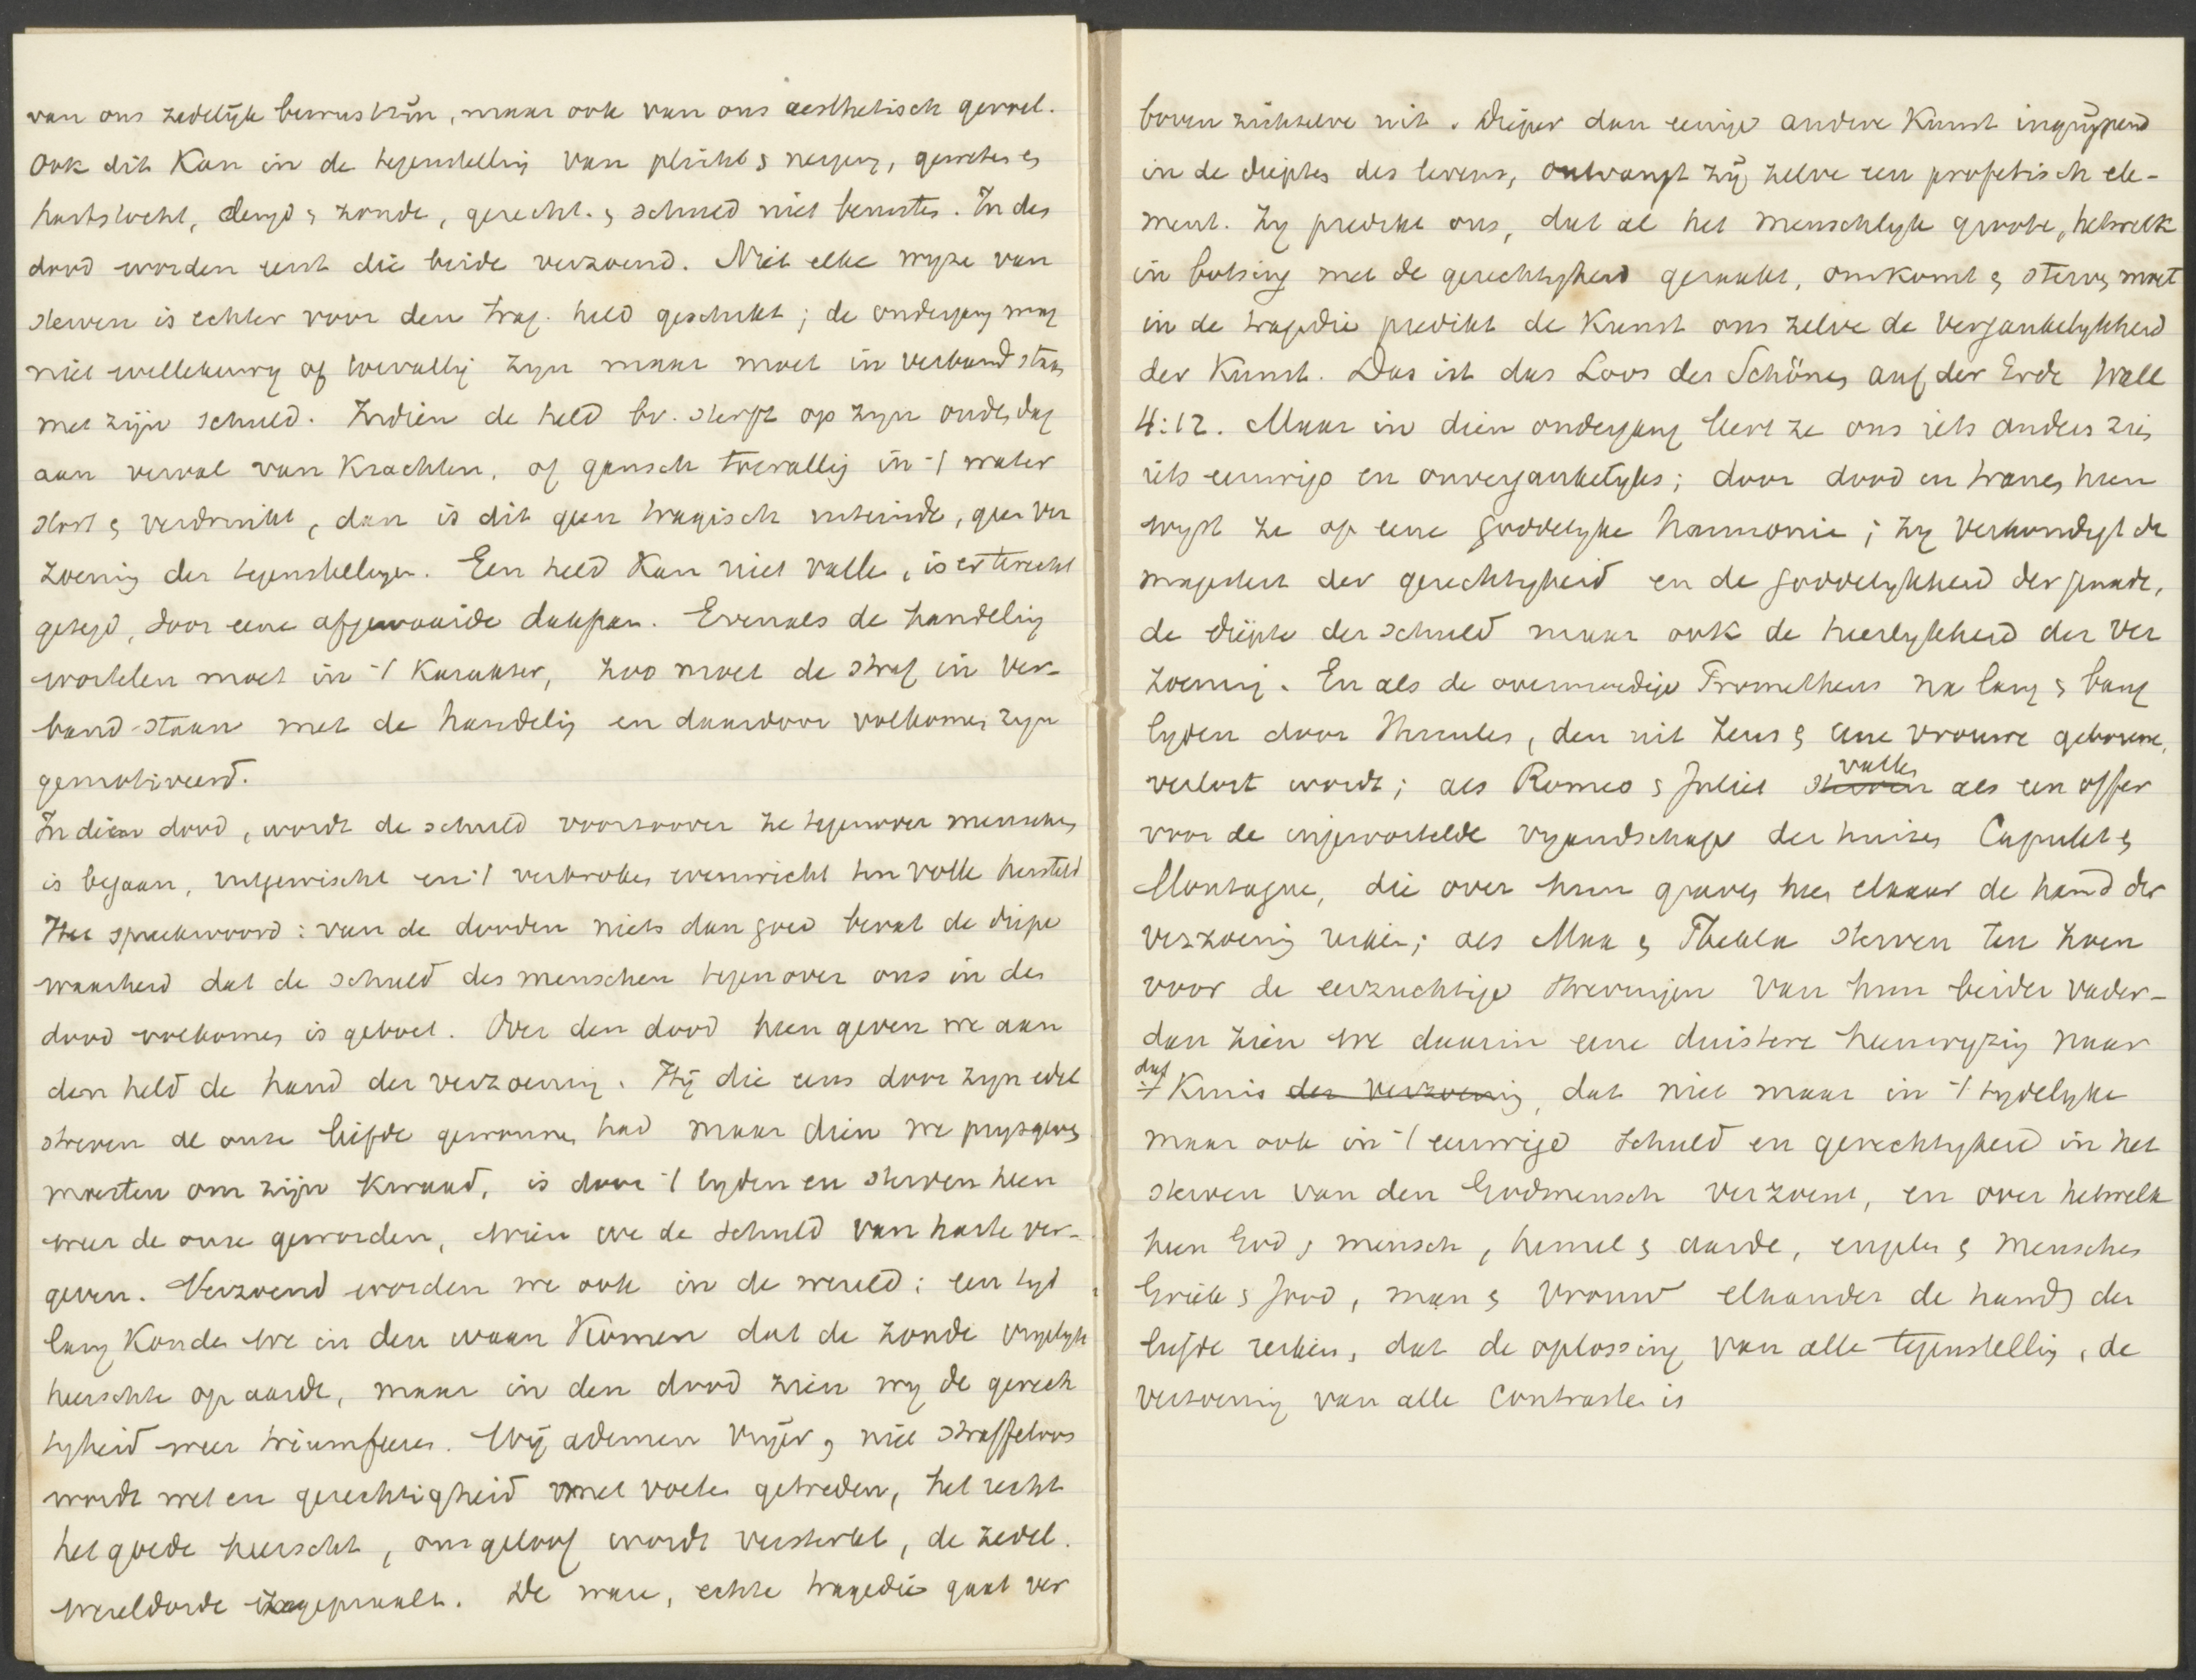 van ons zedelijk bewustzijn, maar ook van ons aesthetisch gevoel.
Ook dit kan in de tegenstelling van plicht & neiging, geweten &
hartstocht, deugd & zonde, gerecht. & schuld niet berusten. In den
dood worden eerst die beide verzoend. Niet elke wyze van
sterven is echter voor den trag. held geschikt; de ondergang mag
niet willekeurig of toevallig zyn maar moet in verband staan
met zijn schuld. Indien de held bv. sterft op zyn ouden dag
aan verval van krachten, of gansch toevallig in 't water
stort & verdrinkt, dan is dit geen tragisch uiteinde, geen ver
zoening der tegenstellingen. Een held kan niet vallen, is er terecht
gezegd, door eene afgewaaide dakpan. Evenals de handeling
wortelen moet in 't karakter, zoo moet de straf in ver-
band staan met de handeling en daardoor volkomen zyn
gemotiveerd.
In dien dood, wordt de schuld voorzoover ze tegenover menschen
is begaan, uitgewischt en 't verbroken evenwicht ten volle hersteld
Het spreekwoord: van de dooden niets dan goed bevat de diepe
waarheid dat de schuld des menschen tegenover ons in den
dood volkomen is geboet. Over den dood heen geven we aan
den held de hand der verzoening. Hij die eens door zyn edel
streven al onze liefde gewonnen had maar dien we prysgeven
moesten om zijn kwaad, is door 't lyden en sterven heen
weer de onze geworden, wien we de schuld van harte ver-
geven. Verzoend worden we ook in de wereld; een tyd
lang konden we in den waan komen dat de zonde ongelyk
heerschte op aarde, maar in den dood zien wy de gerech
tigheid weer triumfeeren. Wij ademen vrijer, niet straffeloos
wordt wet en gerechtigheid met voeten getreden, het recht
het goede heerscht, ons geloof wordt versterkt, de zedel.
wereldorde zegepraalt. De ware, echte tragedie gaat ver
boven zichzelve uit. Dieper dan eenige andere kunst ingrijpend
in de dieptes des levens, ontvangt zij zelve een profetisch ele-
ment. Zy predikt ons, dat al het menschlyk groote, hetwelk
in botsing met de gerechtigheid geraakt, omkomt & sterven moet
in de tragedie predikt de kunst ons zelve de vergankelykheid
der kunst. Das ist das Loos des Schönen auf der Erde Wall
4:12. Maar in dien ondergang leert ze ons iets anders zien
iets eeuwigs en onvergankelyks; door dood en tranen heen
wyst ze op eene goddelyke harmonie; zy verkondigt de
majesteit der gerechtigheid en de goddelykheid der genade,
de diepte der schuld maar ook de heerlykheid der ver
zoening. En als de overmoedige Prometheus na lang & bang
lyden door Hercules, den uit Zeus & eene vrouwe geborene,
verlost wordt; als Romeo & Juliet sterven vallen als een offer
voor de ingewortelde vyandschap der huizen Capulet &
Montague, die over hun graven heen elkaar de hand der
verzoening reiken; als Max & Thekla sterven ten zoen
voor de eerzuchtige strevingen van hun beider vader-
dan zien we daarin eene duistere heenwyzing naar
dat
't Kruis der verzoening, dat niet maar in 't tydelyke
maar ook in 't eeuwige schuld en gerechtigheid in het
sterven van den Godmensch verzoent, en over hetwelk
heen God & mensch, hemel & aarde, engelen & menschen
Griek & Jood, man & vrouw elkander de hand der
liefde reiken, dat de oplossing van alle tegenstelling, de
verzoening van alle contrasten is